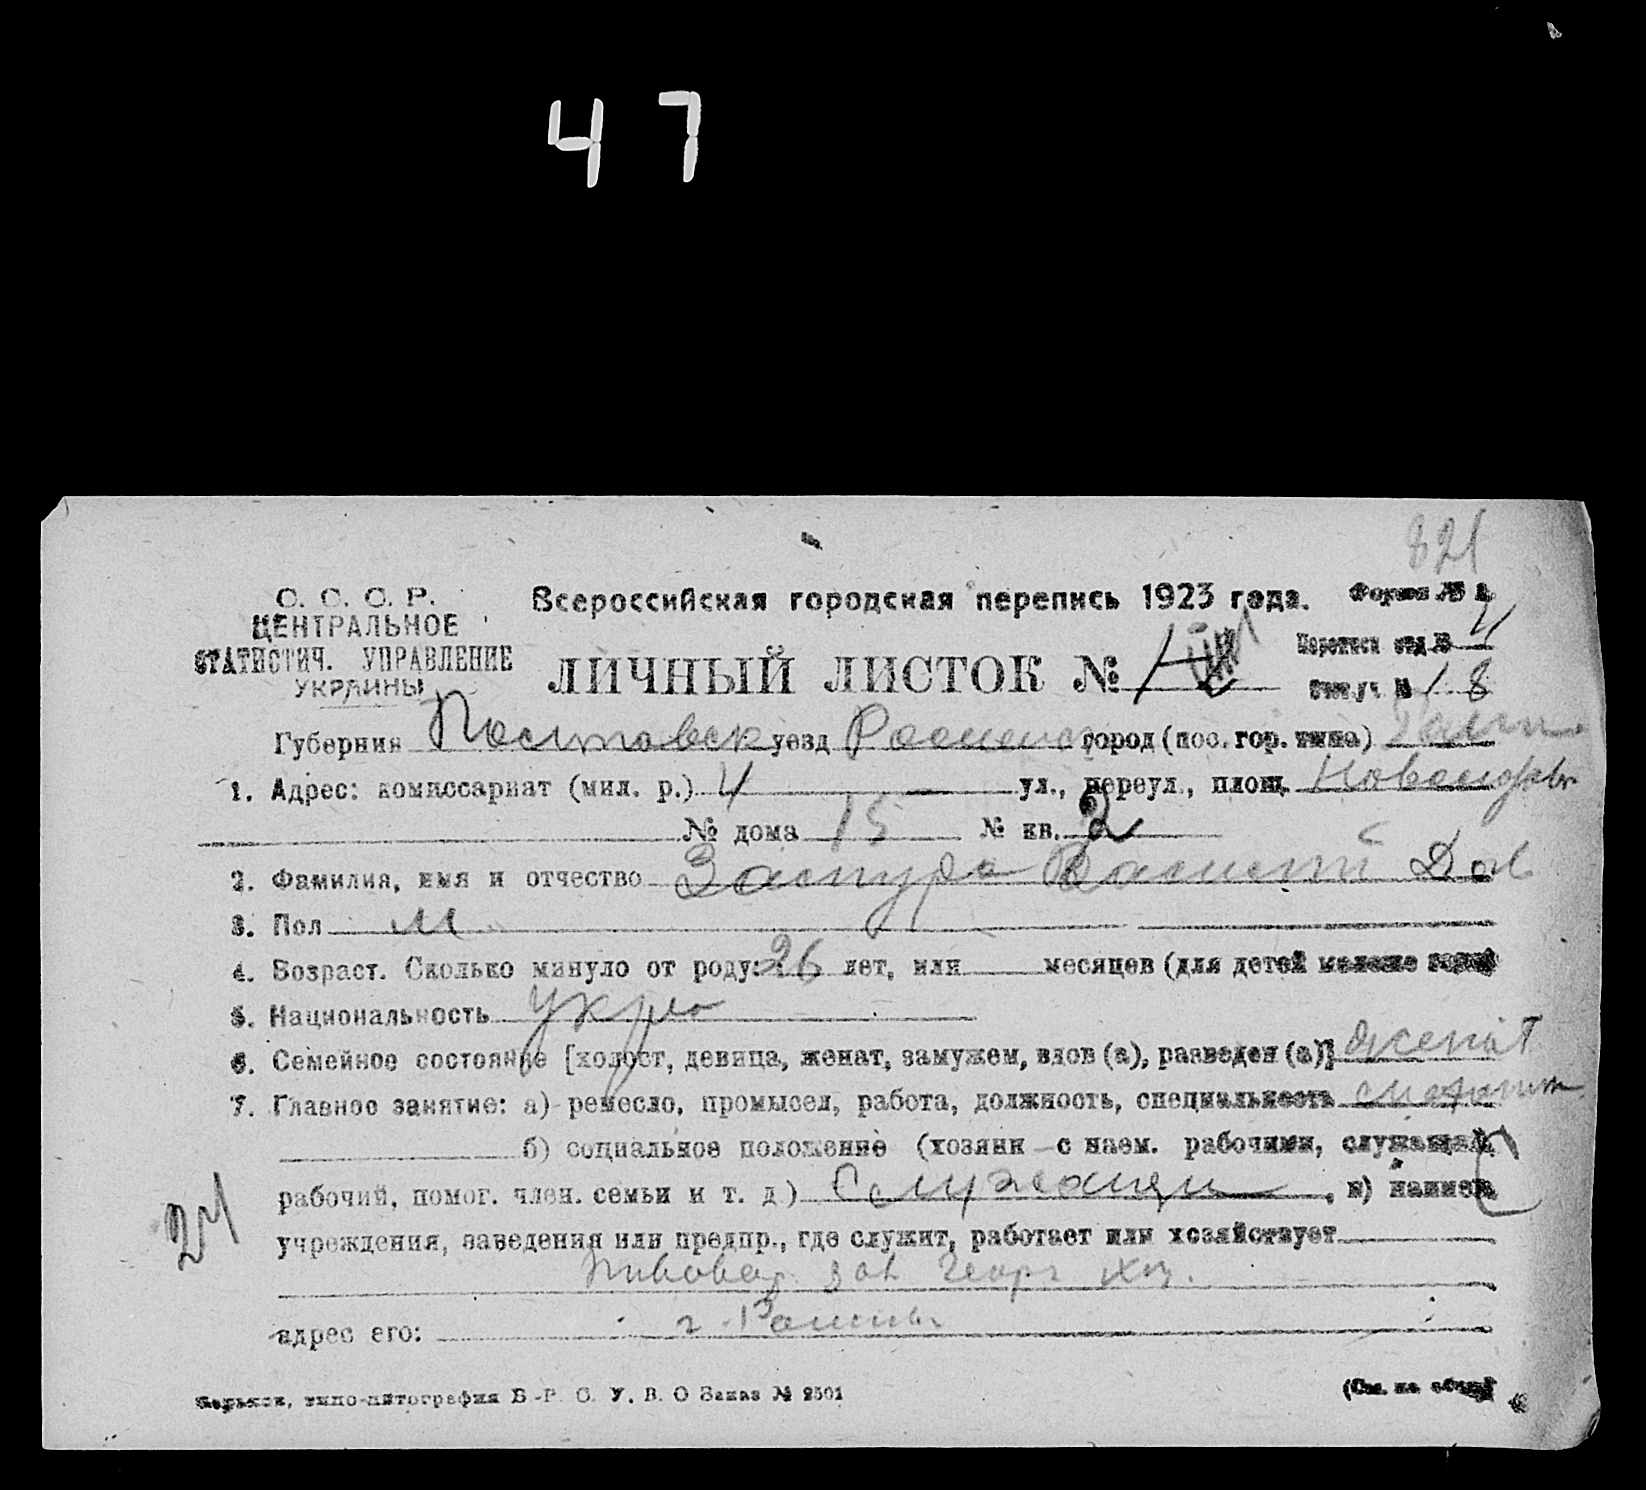 47
821
С. С. С. Р.
ЦЕНТРАЛЬНОЕ
СТАТИСТИЧ. УПРАВЛЕНИЕ
УКРАИНЫ
Всероссийская городская перепись 1923 года.
Форма №
ЛИЧНЫЙ ЛИСТОК №
Переписн отд №
Счетн. уч. № 18
Губерния Полтавск уезд Роменск город (пос. гор. типа)
1. Адрес: комиссариат (мил. р.) 4 ул., переул., площ.
№ дома 15 № кв. 2
2. Фамилия, имя и отчество
3. Пол М
4. Возраст. Сколько минуло от роду: 26 лет, или месяцев (для детей моложе года)
5. Национальность укра
6. Семейное состояние [холост, девица, женат, замужем, вдов (а), разведен (а)] женат
7. Главное занятие: а) ремесло, промысел, работа, должность, специальность
б) социальное положение (хозяин - с наем. рабочими, служащий,
рабочий, помог. член. семьи и т. д.) Служащи, в) наимен.
24
учреждения, заведения или предпр., где служит, работает или хозяйствует
Пивовар. зав
адрес его: г. Ромны
Харьков, типо-литография В.-Р. С. У. В. О Заказ № 2501
(См. на обор